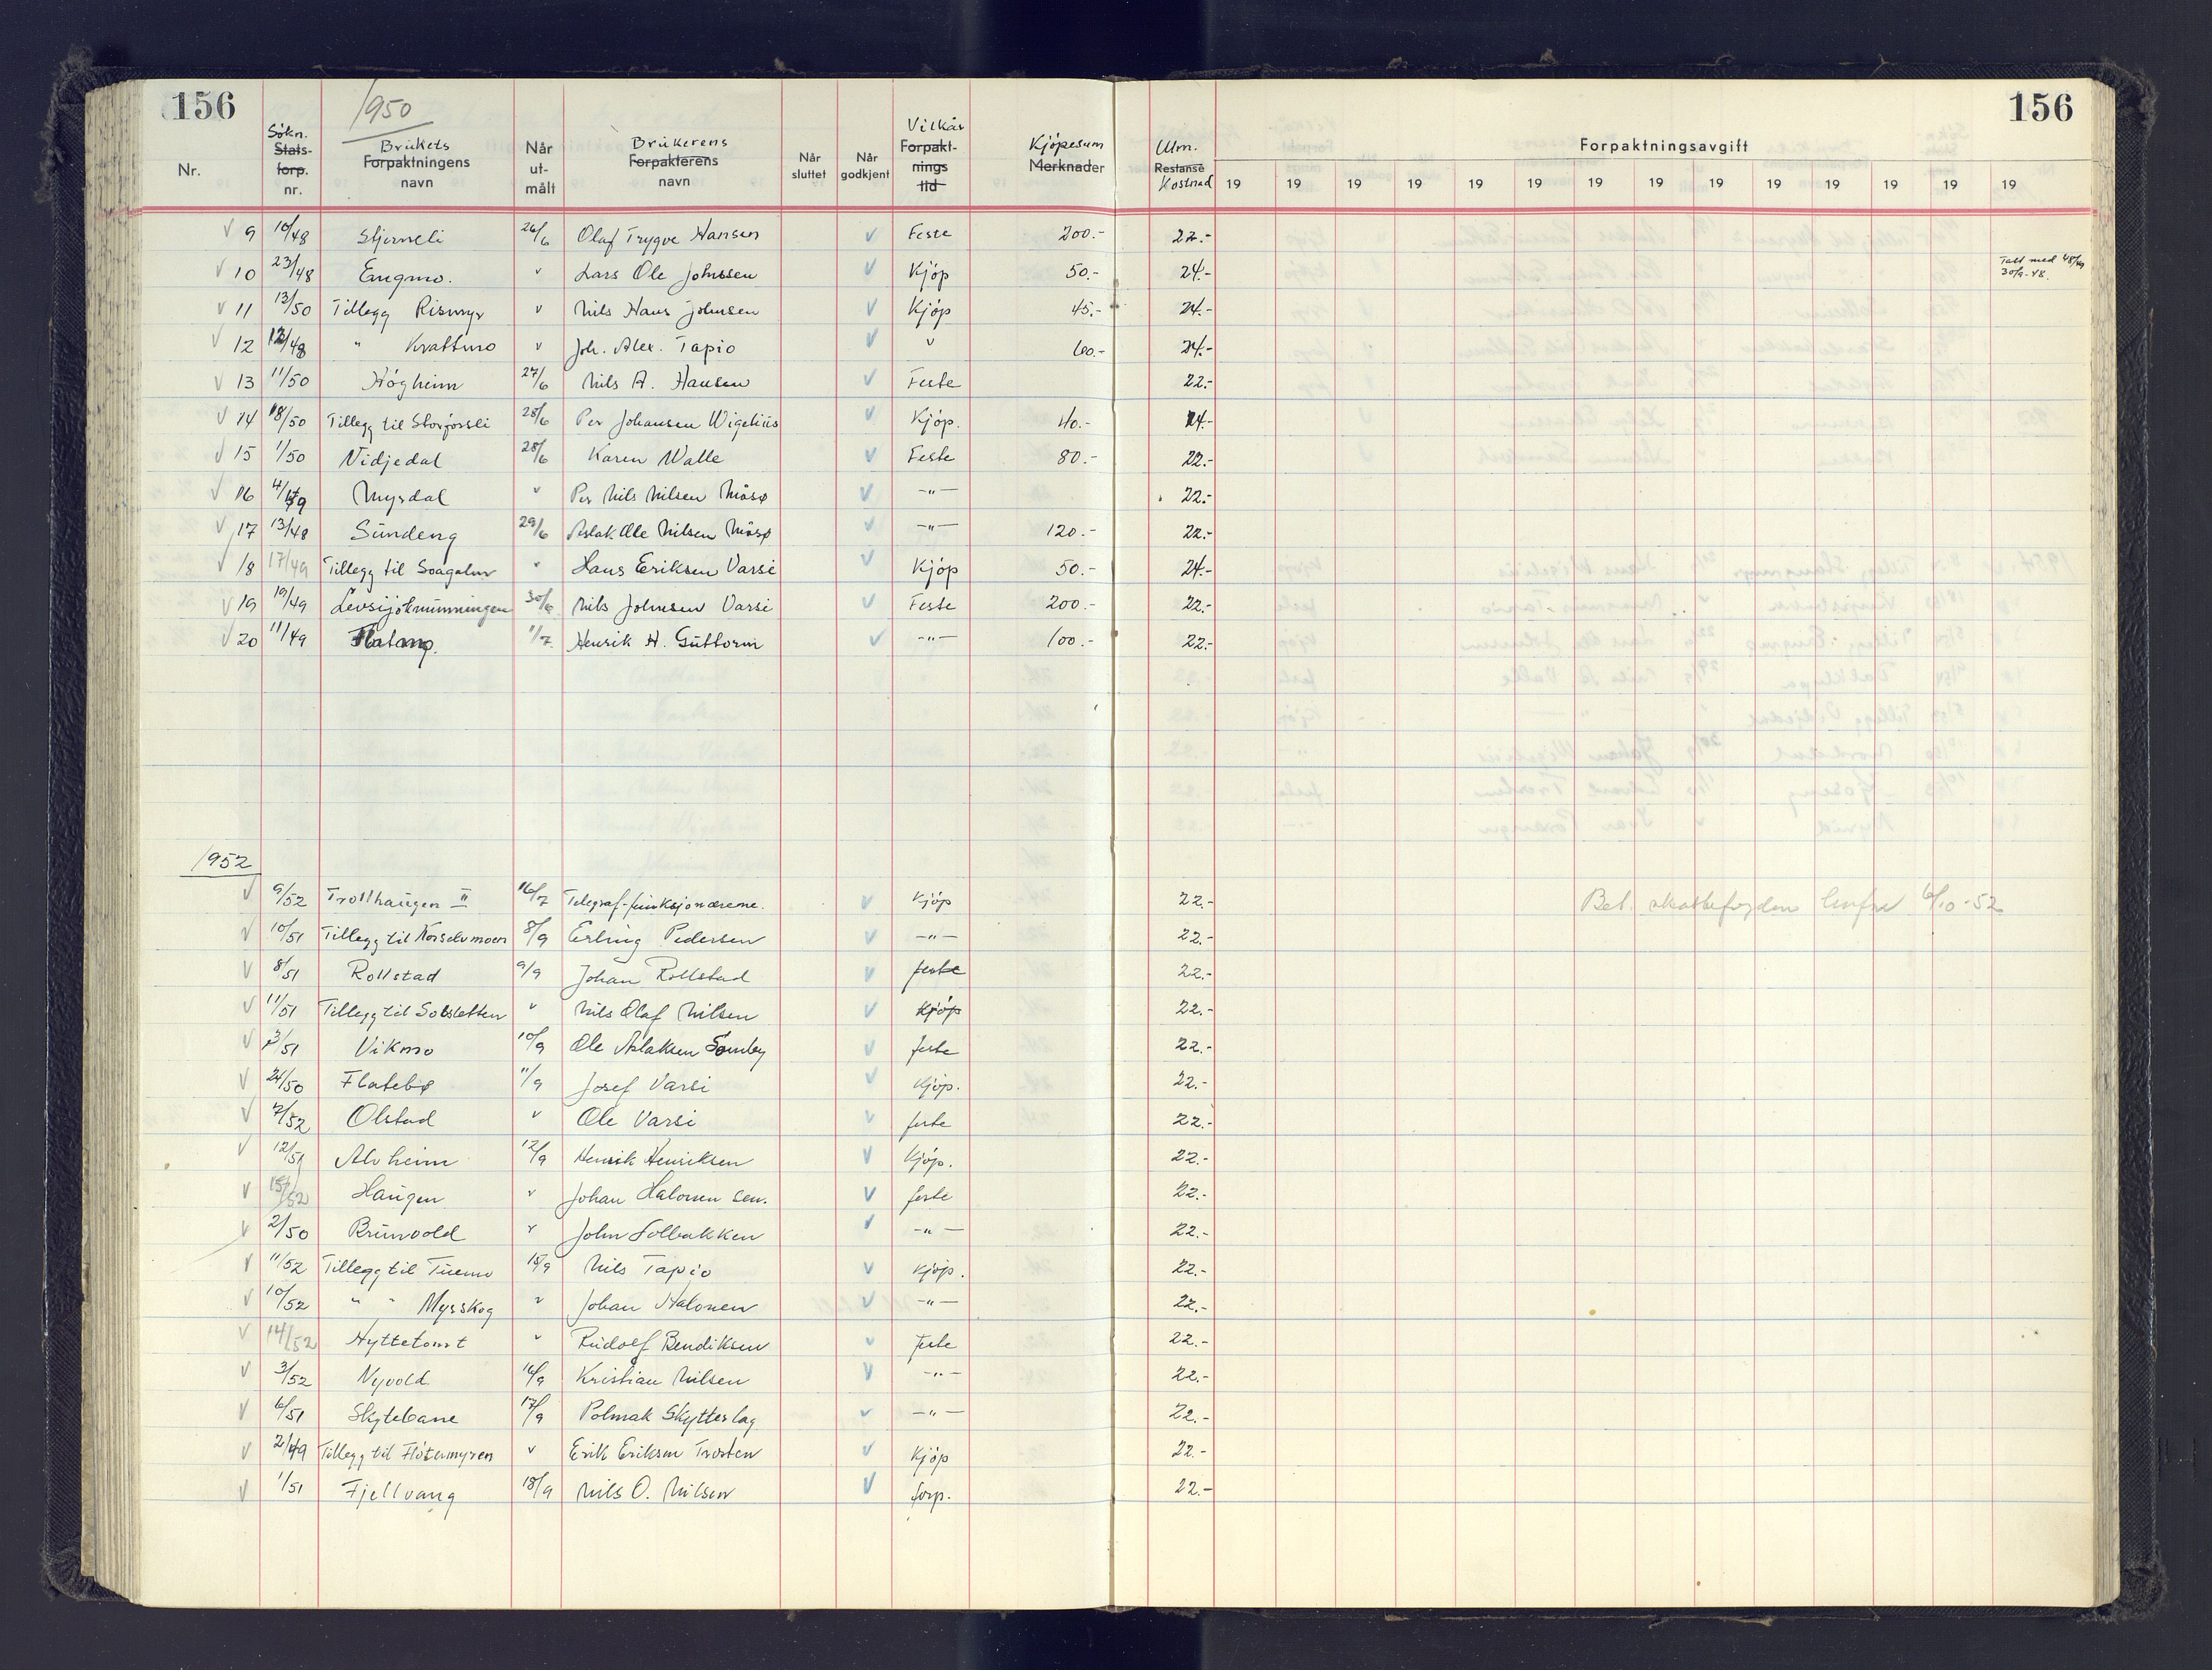 156 1950 156
Nr. Søkn. Stats- forp. nr. Brukets Forpaktningens navn Når ut- målt Brukerens Forpakterens navn Når sluttet Når godkjent Vilkår Forpakt- nings tid Kjøpesum Merknader Utm. Restanse Kostnad Forpaktningsavgift
19 19 19 19 19 19 19 19 19 19 19 19 19 19
√ 9 10/48 Stjerneli 26/6 Olaf Trygve Hansen √ Feste 200.- 22.-
√ 10 23/48 Engmo. " Lars Ole Johnsen √ Kjøp 50.- 24.- Tatt med 48/49 30/9-48.
√ 11 13/50 Tillegg Rismyr " Nils Hans Johnsen √ Kjøp 45.- 24.-
√ 12 12/48 " Krattmo " Joh. Alex. Tapio √ " 60.- 24.-
√ 13 11/50 Høgheim 27/6 Nils A. Hansen √ Feste 22.-
√ 14 18/50 Tillegg til Storfossli 28/6 Per Johansen Wigelius √ Kjøp. 40.- 24.-
√ 15 1/50 Vidjedal 28/6 Karen Walle √ Feste 80.- 22.-
√ 16 4/49 Myrdal " Per Nils Nilsen Måsø √ -"- 22.-
√ 17 13/48 Sundeng 29/6 Aslak Ole Nilsen Måsø √ -"- 120.- 22.-
√ 18 17/49 Tillegg til Soagalur " Hans Eriksen Varsi √ Kjøp 50.- 24.-
√ 19 19/49 Levsijokmunningen 30/6 Nils Johnsen Varsi √ Feste 200.- 22.-
√ 20 11/49 Flatmo. 1/7 Henrik H. Guttorm √ -"- 100.- 22.-
1952
√ 9/52 Trollhaugen II 16/7 Telegraf-funksjonærene. √ Kjøp 22.- Bet. skattefogden 6/10-52
√ 10/51 Tillegg til Norselvmoen 8/9 Erling Pedersen √ -"- 22.-
√ 8/51 Rollstad 9/9 Johan Rollstad √ feste 22.-
√ 11/51 Tillegg til Solsletten " Nils Olaf Nilsen √ Kjøp 22.-
√ 3/51 Vikmo 10/9 Ole Aslaksen Somby √ feste 22.-
√ 24/50 Flatebø 11/9 Josef Varsi √ Kjøp. 22.-
√ 7/52 Olstad " Ole Varsi √ feste 22.-
√ 12/51 Alvheim 12/9 Henrik Henriksen √ Kjøp. 22.-
√ 15/52 Haugen " Johan Halonen sen. √ feste 22.-
√ 2/50 Brunvold " John Solbakken √ -"- 22.-
√ 11/52 Tillegg til Tuemo 15/9 Nils Tapio √ Kjøp. 22.-
√ 10/52 " " Myrskog " Johan Halonen √ -"- 22.-
√ 14/52 Hyttetomt " Rudolf Bendiksen √ feste 22.-
√ 3/52 Nyvold 16/9 Kristian Nilsen √ -"- 22.-
√ 6/51 Skytebane 17/9 Polmak Skytterlag √ -"- 22.-
√ 2/49 Tillegg til Fløtermyren " Erik Eriksen Trosten √ Kjøp 22.-
√ 1/51 Fjellvang 18/9 Nils O. Nilsen √ forp. 22.-